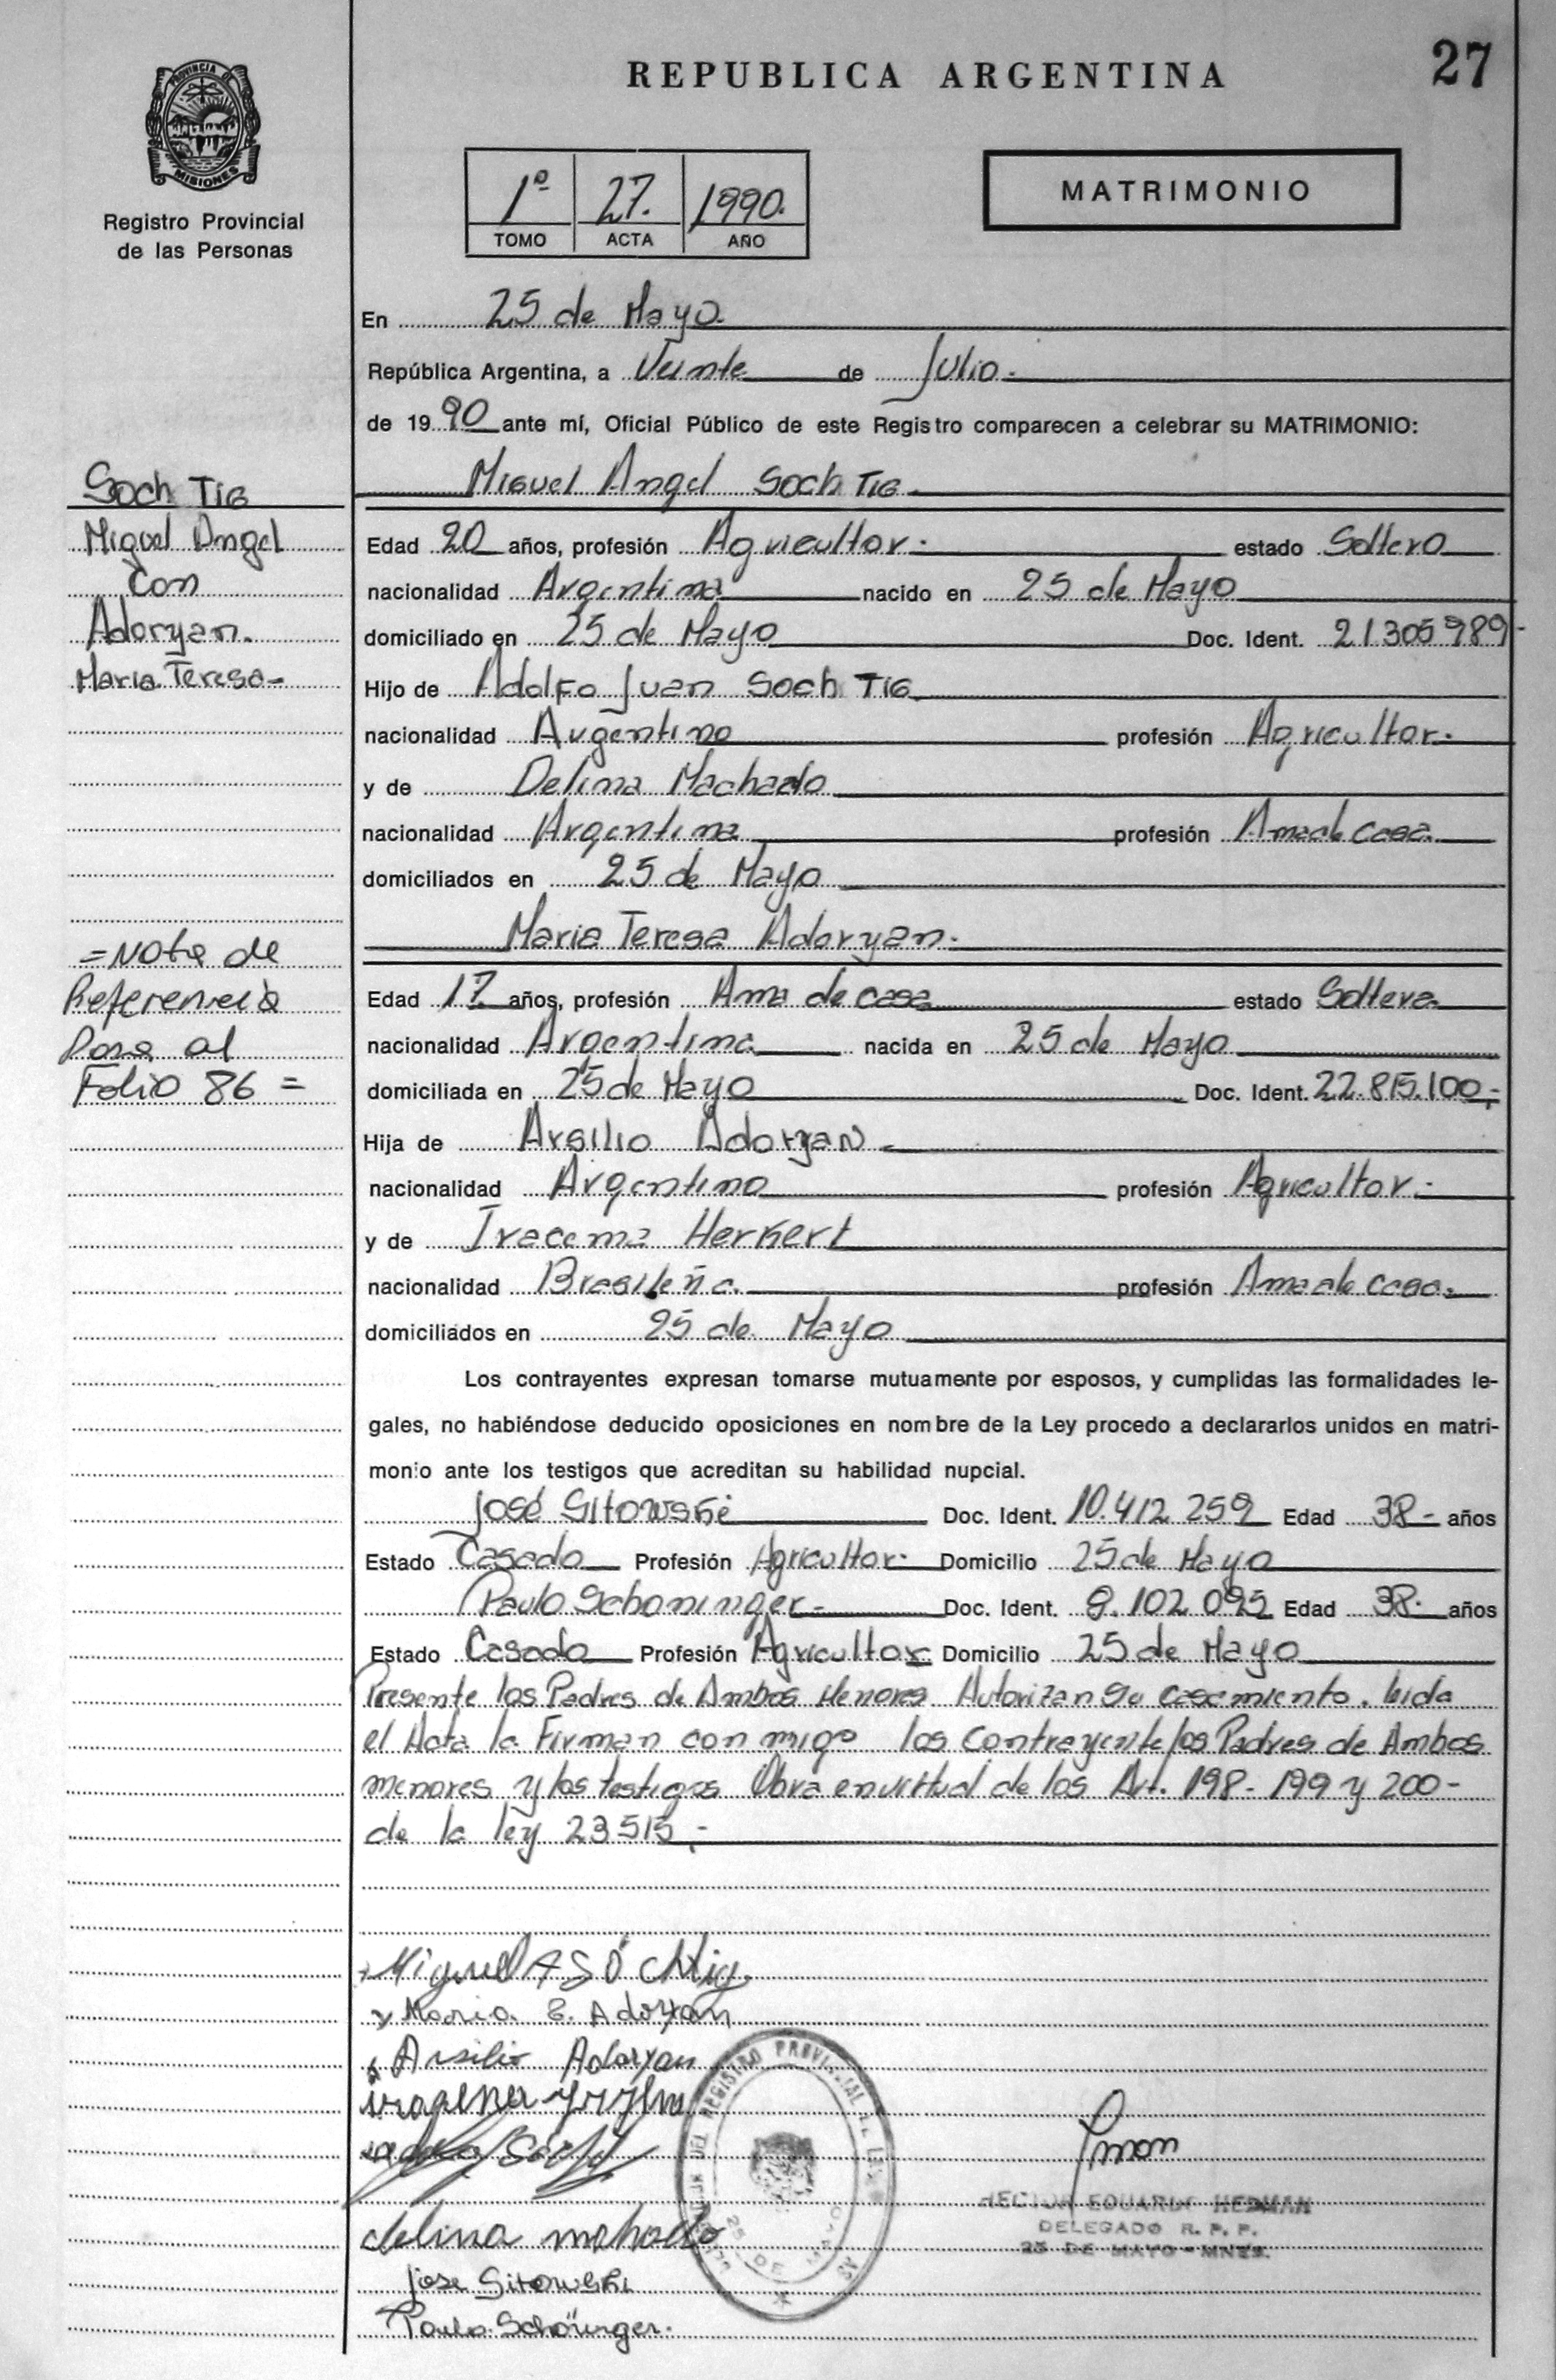 REPUBLICA ARGENTINA
27
PROVINCIA DE
MISIONES
Registro Provincial
de las Personas
1º 27. 1990.
TOMO ACTA AÑO
MATRIMONIO
En 25 de Mayo.
República Argentina, a Veinte de Julio.
de 1990 ante mí, Oficial Público de este Registro comparecen a celebrar su MATRIMONIO:
Soch Tig
Miguel Angel
Con
Adoryan.
Maria Teresa-
=Nota de
Referencia
Pasa al
Folio 86 =
Miguel Angel Soch Tig
Edad 20 años, profesión Agricultor. estado Soltero
nacionalidad Argentina nacido en 25 de Mayo
domiciliado en 25 de Mayo Doc. Ident. 21.305989-
Hijo de Adolfo Juan Soch Tig
nacionalidad Argentino profesión Agricultor.
y de Delima Machado
nacionalidad Argentina profesión Ama de casa.
domiciliados en 25 de Mayo
Maria Teresa Adoryan.
Edad 17 años, profesión Ama de casa estado Soltera
nacionalidad Argentina nacida en 25 de Mayo
domiciliada en 25 de Mayo Doc. Ident. 22.815.100,-
Hija de Arsilio Adoryan
nacionalidad Argentino profesión Agricultor.-
y de Iracema Herkert
nacionalidad Brasileña. profesión Ama de casa.
domiciliados en 25 de Mayo
Los contrayentes expresan tomarse mutuamente por esposos, y cumplidas las formalidades le-
gales, no habiéndose deducido oposiciones en nombre de la Ley procedo a declararlos unidos en matri-
monio ante los testigos que acreditan su habilidad nupcial.
José Sitowski Doc. Ident. 10.412 259 Edad 38- años
Estado Casado Profesión Agricultor. Domicilio 25 de Mayo
Paulo Schoninger- Doc. Ident. 8.102 095 Edad 38. años
Estado Casado Profesión Agricultor Domicilio 25 de Mayo
Presente los Padres de Ambos Menores Autorizan su casamiento. leida
el Acta la Firman con migo los Contrayente los Padres de Ambos
menores y los testigos Obra en virtud de los Art. 198- 199 y 200-
de la ley 23515,-
Miguel A Söchtig
Maria T. Adoryan
Arsilio Adoryan
delina mchado
Jose Sitowski
Paulo Schöninger.
DEL REGISTRO PROVINCIAL DE LAS
25 DE MAYO
HECTOR EDUARDO HEDMAN
DELEGADO R. P. P.
25 DE MAYO - MNES.